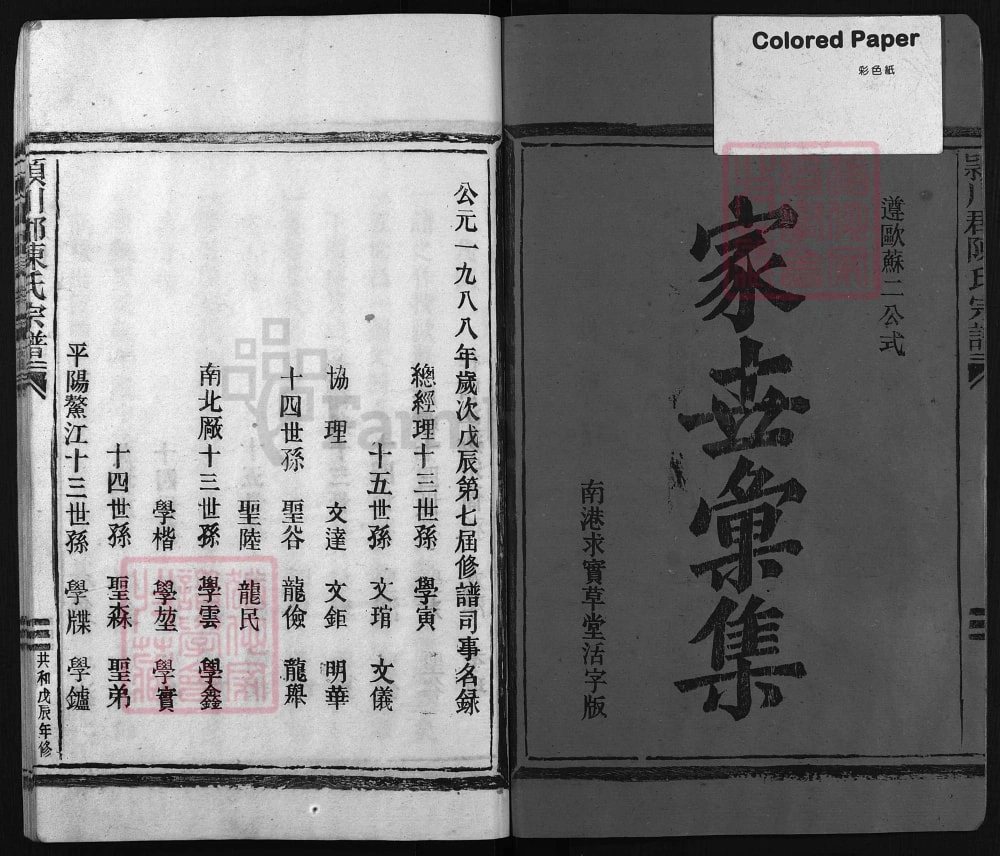 Colored Paper
彩色紙
潁川郡陳氏宗譜
遵歐蘇二公式
家世彙集
南港求實草堂活字版
公元一九八八年歲次戊辰第七届修譜司事名録
總經理十三世孫 學寅
十五世孫 文琯 文儀
協理 文達 文鉅 明華
十四世孫 聖谷 龍儉 龍舉
聖陸 龍民
南北厰十三世孫 學雲 學鑫
學楷 學堃 學實
十四世孫 聖森 聖弟
平陽鰲江十三世孫 學牒 學鑪
潁川郡陳氏宗譜
共和戊辰年修